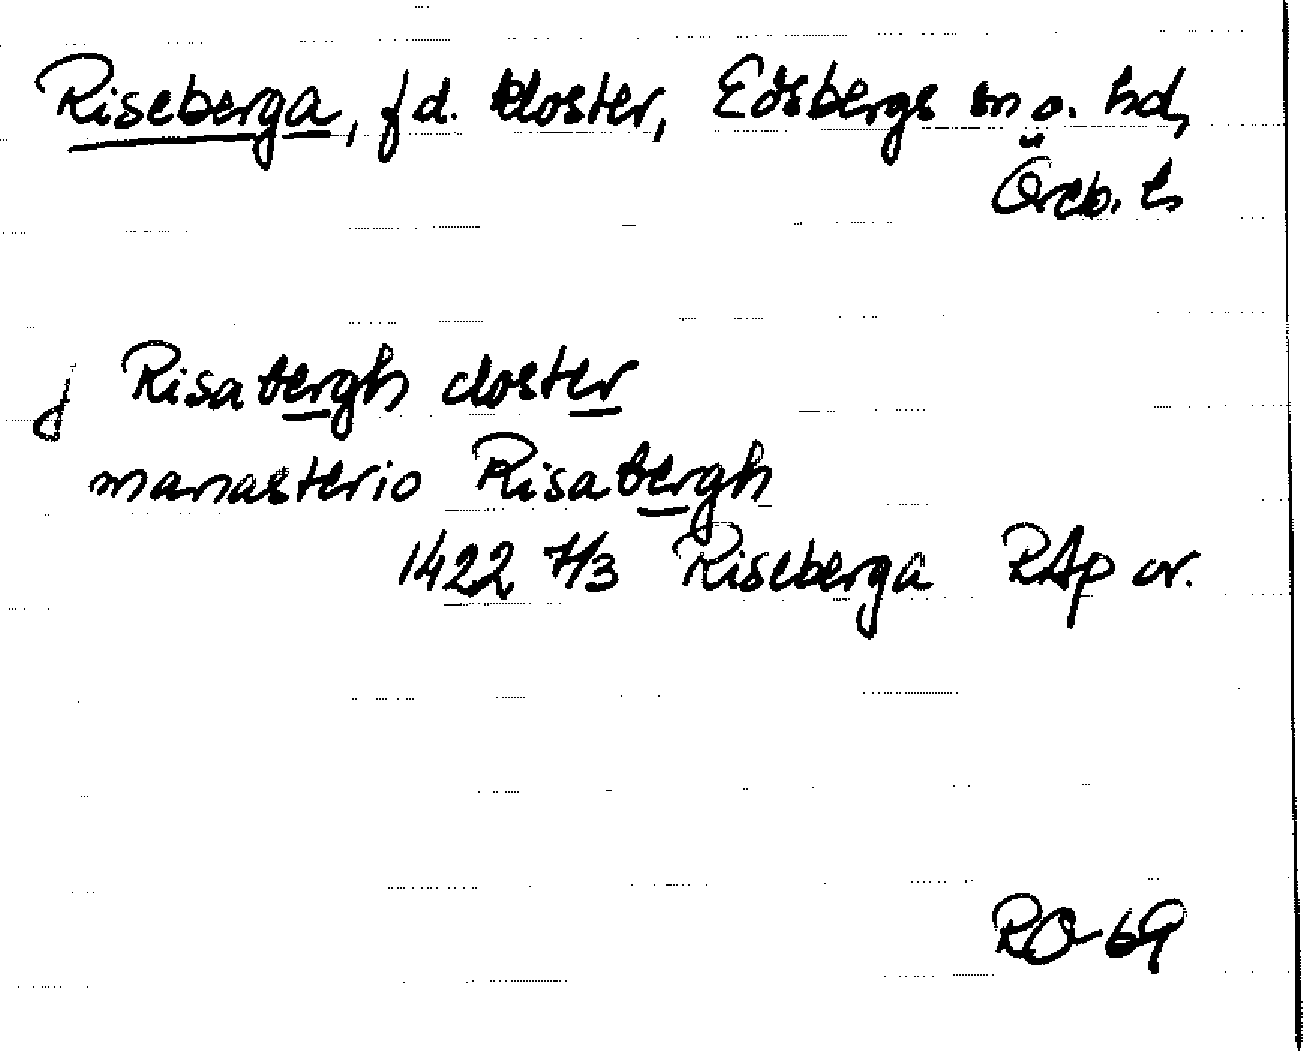 Riseberga, f d. kloster, Edsbergs sn o. hd,
Öreb. l
j Risabergh closter
manasterio Risabergh
1422 7/3 Riseberga RAp or.
RO 69